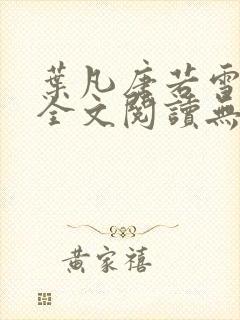 葉凡唐若雪
全文閱讀無
黃家禧